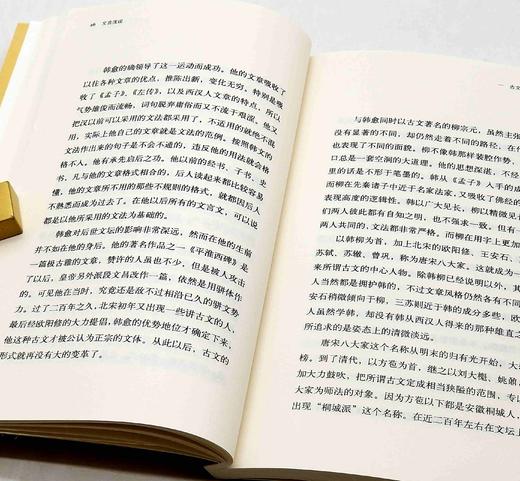 文言浅说
韩愈的确领导了这一运动而成功。他的文章吸收了
以往各种文章的优点，推陈出新，变化无穷。特别是吸
收了《孟子》、《左传》，以及西汉人文章的特点，所以
气势雄俊而流畅，词句脱弃庸俗而又不流于艰涩。他又
把汉以前可以采用的文法都采用了，不适用的就绝不混
用，实际上他自己的文章就是文法的范例，按照韩文的
文法作出来的句子是不会不通的，违反他的用法就会格
格不入。他有承先启后之功。他以前的经书、子书、史
书，凡与他的文章格式相合的，后人读起来都比较容易
懂，他的文章所不用的那些不规则的格式，就都因后人
不熟悉而成为过去了。在他以后所有的文言文，可以说
都是以他所采用的文法为基础的。
韩愈对后世文坛的影响非常深远，然而在他的生前
并不如在他的身后。他的著名作品之一《平淮西碑》是
一篇极古雅的文章，赞许的人虽也不少，但是被人攻击
了以后，皇帝另外派段文昌改作一篇，依然是用骈体作
的。可见他在当时，究竟还是敌不过相沿已久的骈文势
力。过了二百年之久，北宋初年又出现一些讲古文的人，
最后经欧阳修的大力提倡，韩愈的优势地位才确定下来，
他这种古文才被公认为正宗的文体。从此以后，古文的
形式就再没有大的变革了。
一 古文
与韩愈同时以古文著名的柳宗元，虽然主张
没有显著的不同，却仍然走着不同的路径，
也表现了不同的面貌。柳不像韩那样装腔作势，
口总是一套空洞的大道理。他的思想深湛，不轻
里的话是不形于笔墨的。韩从《孟子》入手的成
而柳在先秦诸子中近于名家法家，又吸收了佛经的
表现高度的逻辑性。韩以广大见长，柳以精微见
们两人彼此都有自知之明，也不强求一致。但有一
两人共同的，文法都非常严格。而柳在用字上更加
以韩柳为首，加上北宋的欧阳修、王安石、
苏轼、苏辙、曾巩，称为唐宋八大家。这就成为一
谓古文的中心人物。除韩柳已经说明以外，其
人当然都是拥护韩的，不过文章风格仍然各有不同
安石稍微倾向于柳，三苏则近于韩的成分多些，欧
人虽然学韩，却没有韩从西汉人得来的那种雄直之
所追求的是姿态上的清微淡远。
唐宋八大家这个名称从明末的归有光开始，大
榜。到了清代，以方苞为首，继之以刘大櫆、姚鼐
加大力鼓吹，把所谓古文定成相当狭隘的范围，专
大家为师法的对象。因为方苞以下都是安徽桐城人，
出现“桐城派”这个名称。在近二百年左右在文坛上